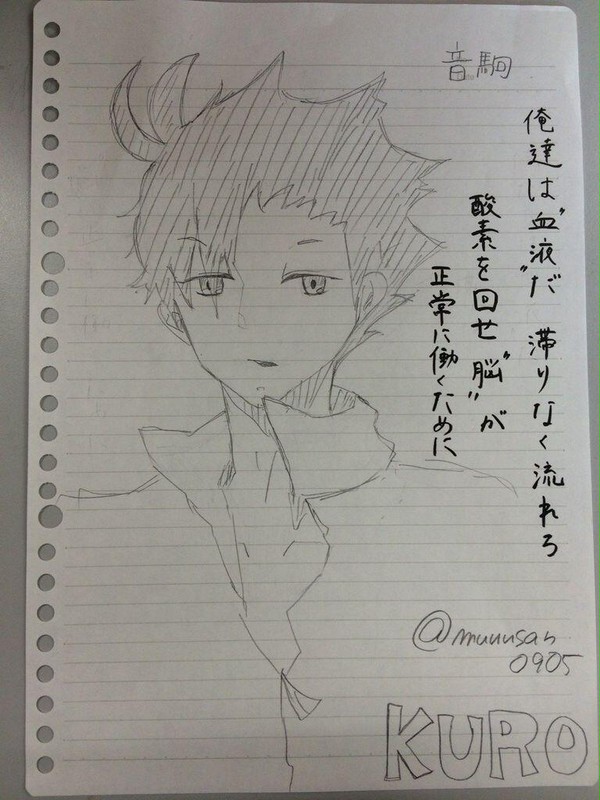 音駒
俺達は"血液"だ 滞りなく流れろ
酸素を回せ "脳"が
正常に働くために
@muuusan
0905
KURO